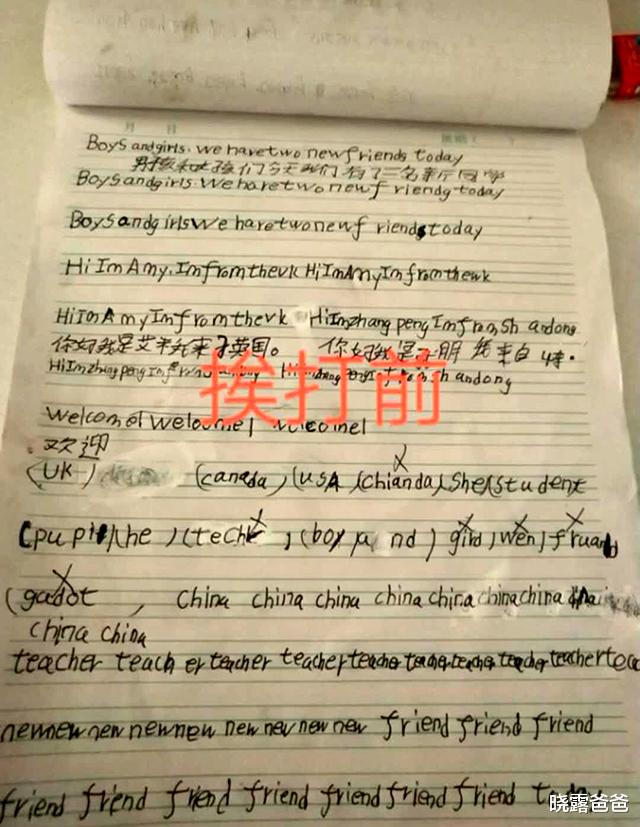 Boys and girls. we have two new friends today
男孩和女孩们今天我们有了二名新同学
Boys and girls. We have two new friends today
Boys and girls We have two new friends today
Hi Im Amy. Im from the vk Hi Im Amy Im from the wk
Hi Im Amy Im from the vk Hi Im zhang peng Im from Sh andong
你好我是艾米我来于英国。 你好我是 朋 我来自
Hi Im zhang peng Im from Hi Im zhang peng Im from Shandong
挨打前
welcome! welcome! welcome!
欢迎
(UK) (canada) (USA) (chianda) She (student
(pu pil) he ) (teche ) (boy nd) gird) wen) fruand
(gadot , China china china china china china china
china china
teacher teach er teacher teacher teacher teacher teacher teacher teacher teac
new new new new new new new new new friend friend friend
friend friend friend friend friend friend friend today
晓露爸爸